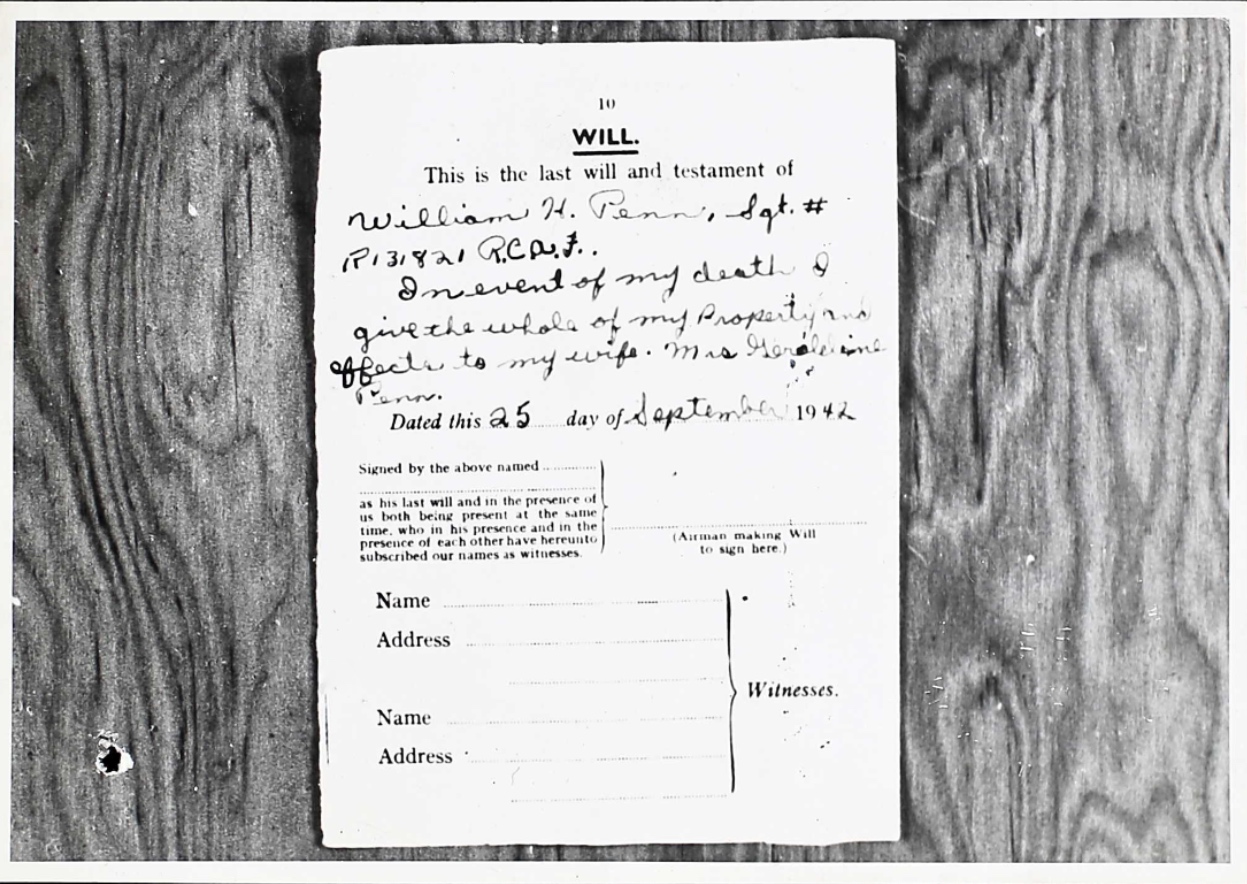 10
WILL.
This is the last will and testament of
William H. Penn, Sgt. #
R131821 R.C.A.F..
In event of my death I
give the whole of my Property and
effects to my wife. Mrs Geraldine
Penn.
Dated this 25 day of September 1942
Signed by the above named
as his last will and in the presence of
us both being present at the same
time, who in his presence and in the
presence of each other have hereunto
subscribed our names as witnesses.
(Airman making Will
to sign here.)
Name
Address
Name
Address
Witnesses.